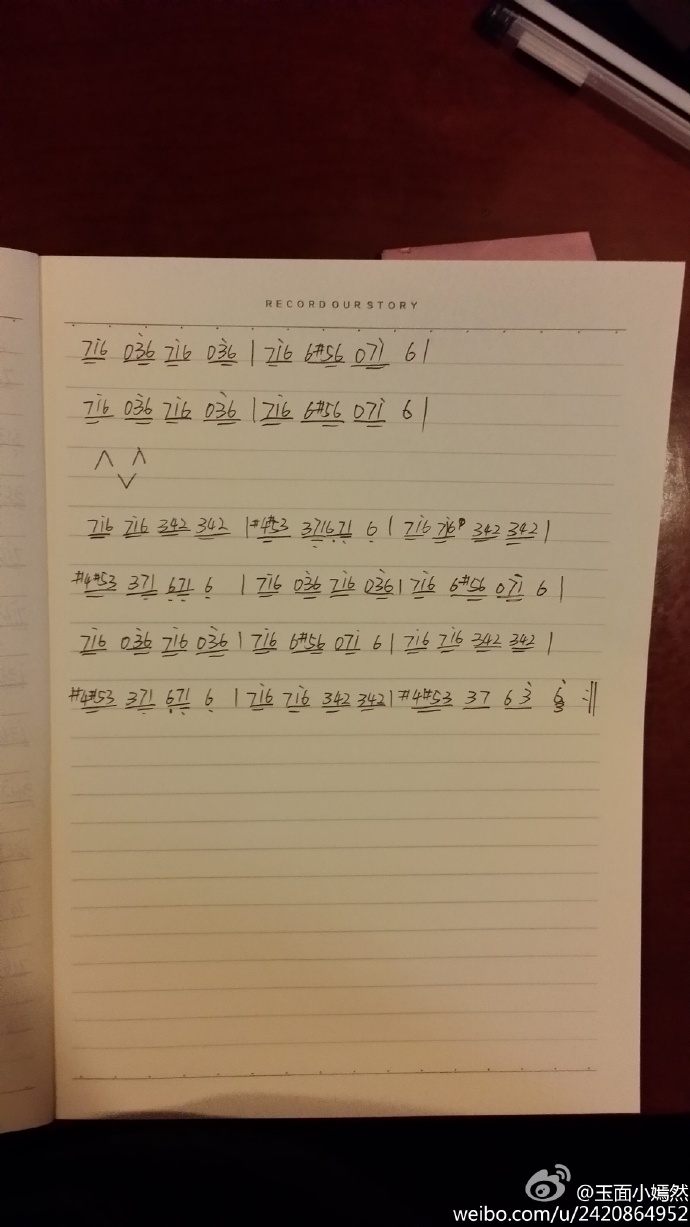 RECORD OUR STORY
7i6 03̇6 7i6 03̇6 | 7i6 6#56 07i 6 |
7i6 03̇6 7i6 03̇6 | 7i6 6#56 07i 6 |
∧ ∧
∨
7i6 7i6 342 342 | #4#53 371671 6 | 7i6 7i6 342 342 |
#4#53 371 671 6 | 7i6 03̇6 7i6 03̇6 | 7i6 6#56 07i 6 |
7i6 03̇6 7i6 03̇6 | 7i6 6#56 07i 6 | 7i6 7i6 342 342 |
#4#53 371 671 6 | 7i6 7i6 342 342 | #4#53 37 63̇ 6̇ :||
@玉面小嫣然
weibo.com/u/2420864952